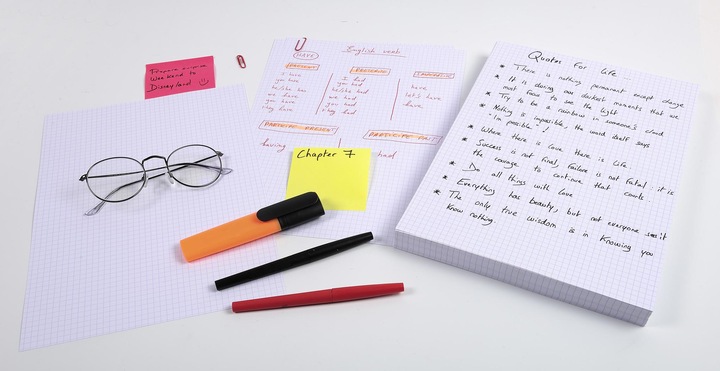 Prepare surprise
Weekend to
Disneyland
HAVE
English verb
PRESENT
I have
you have
he/she has
we have
you have
they have
I had
you had
he/she had
we had
you had
they had
have
let's have
have
PARTICIPE PRESENT
having
PARTICIPE PAST
had
Chapter 7
Quotes For Life...
* There is nothing permanent except change
* It is during our darkest moments that we
must focus to see the light
* Try to be a rainbow in someone's cloud
* Nothing is impossible, the word itself says
"i'm possible"!
* Where there is love there is life
* Success is not final, failure is not fatal: it is
the courage to continue that counts
* Do all things with love
* Everything has beauty, but not everyone sees it
* The only true wisdom is in knowing you
know nothing.